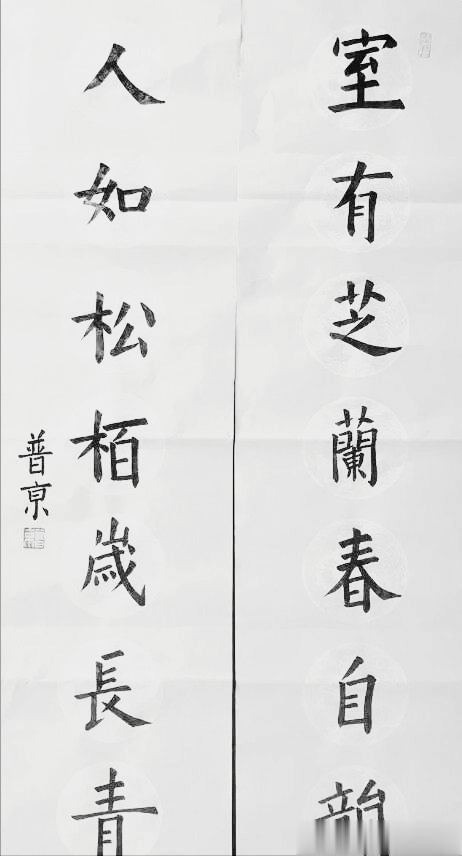 室有芝蘭春自
人如松栢嵗長青
普亰